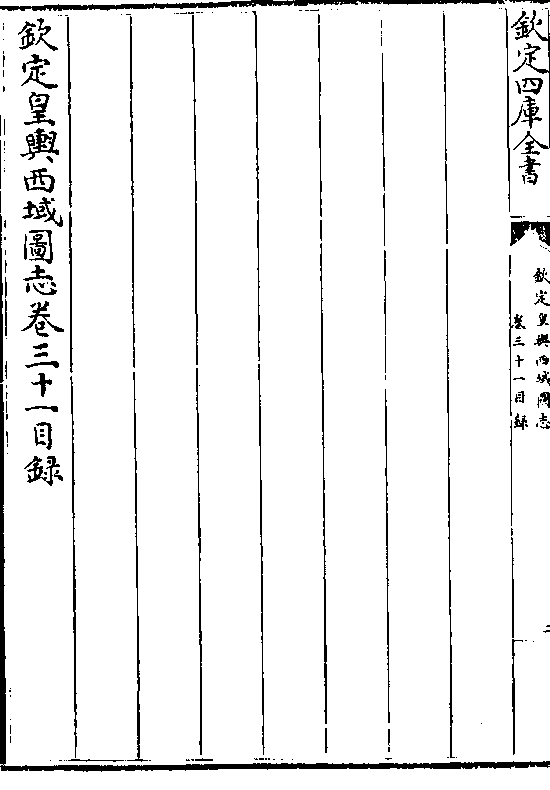 欽定四庫全書
欽定皇輿西域圖志
卷三十一目録
二
欽定皇輿西域圖志卷三十一目録